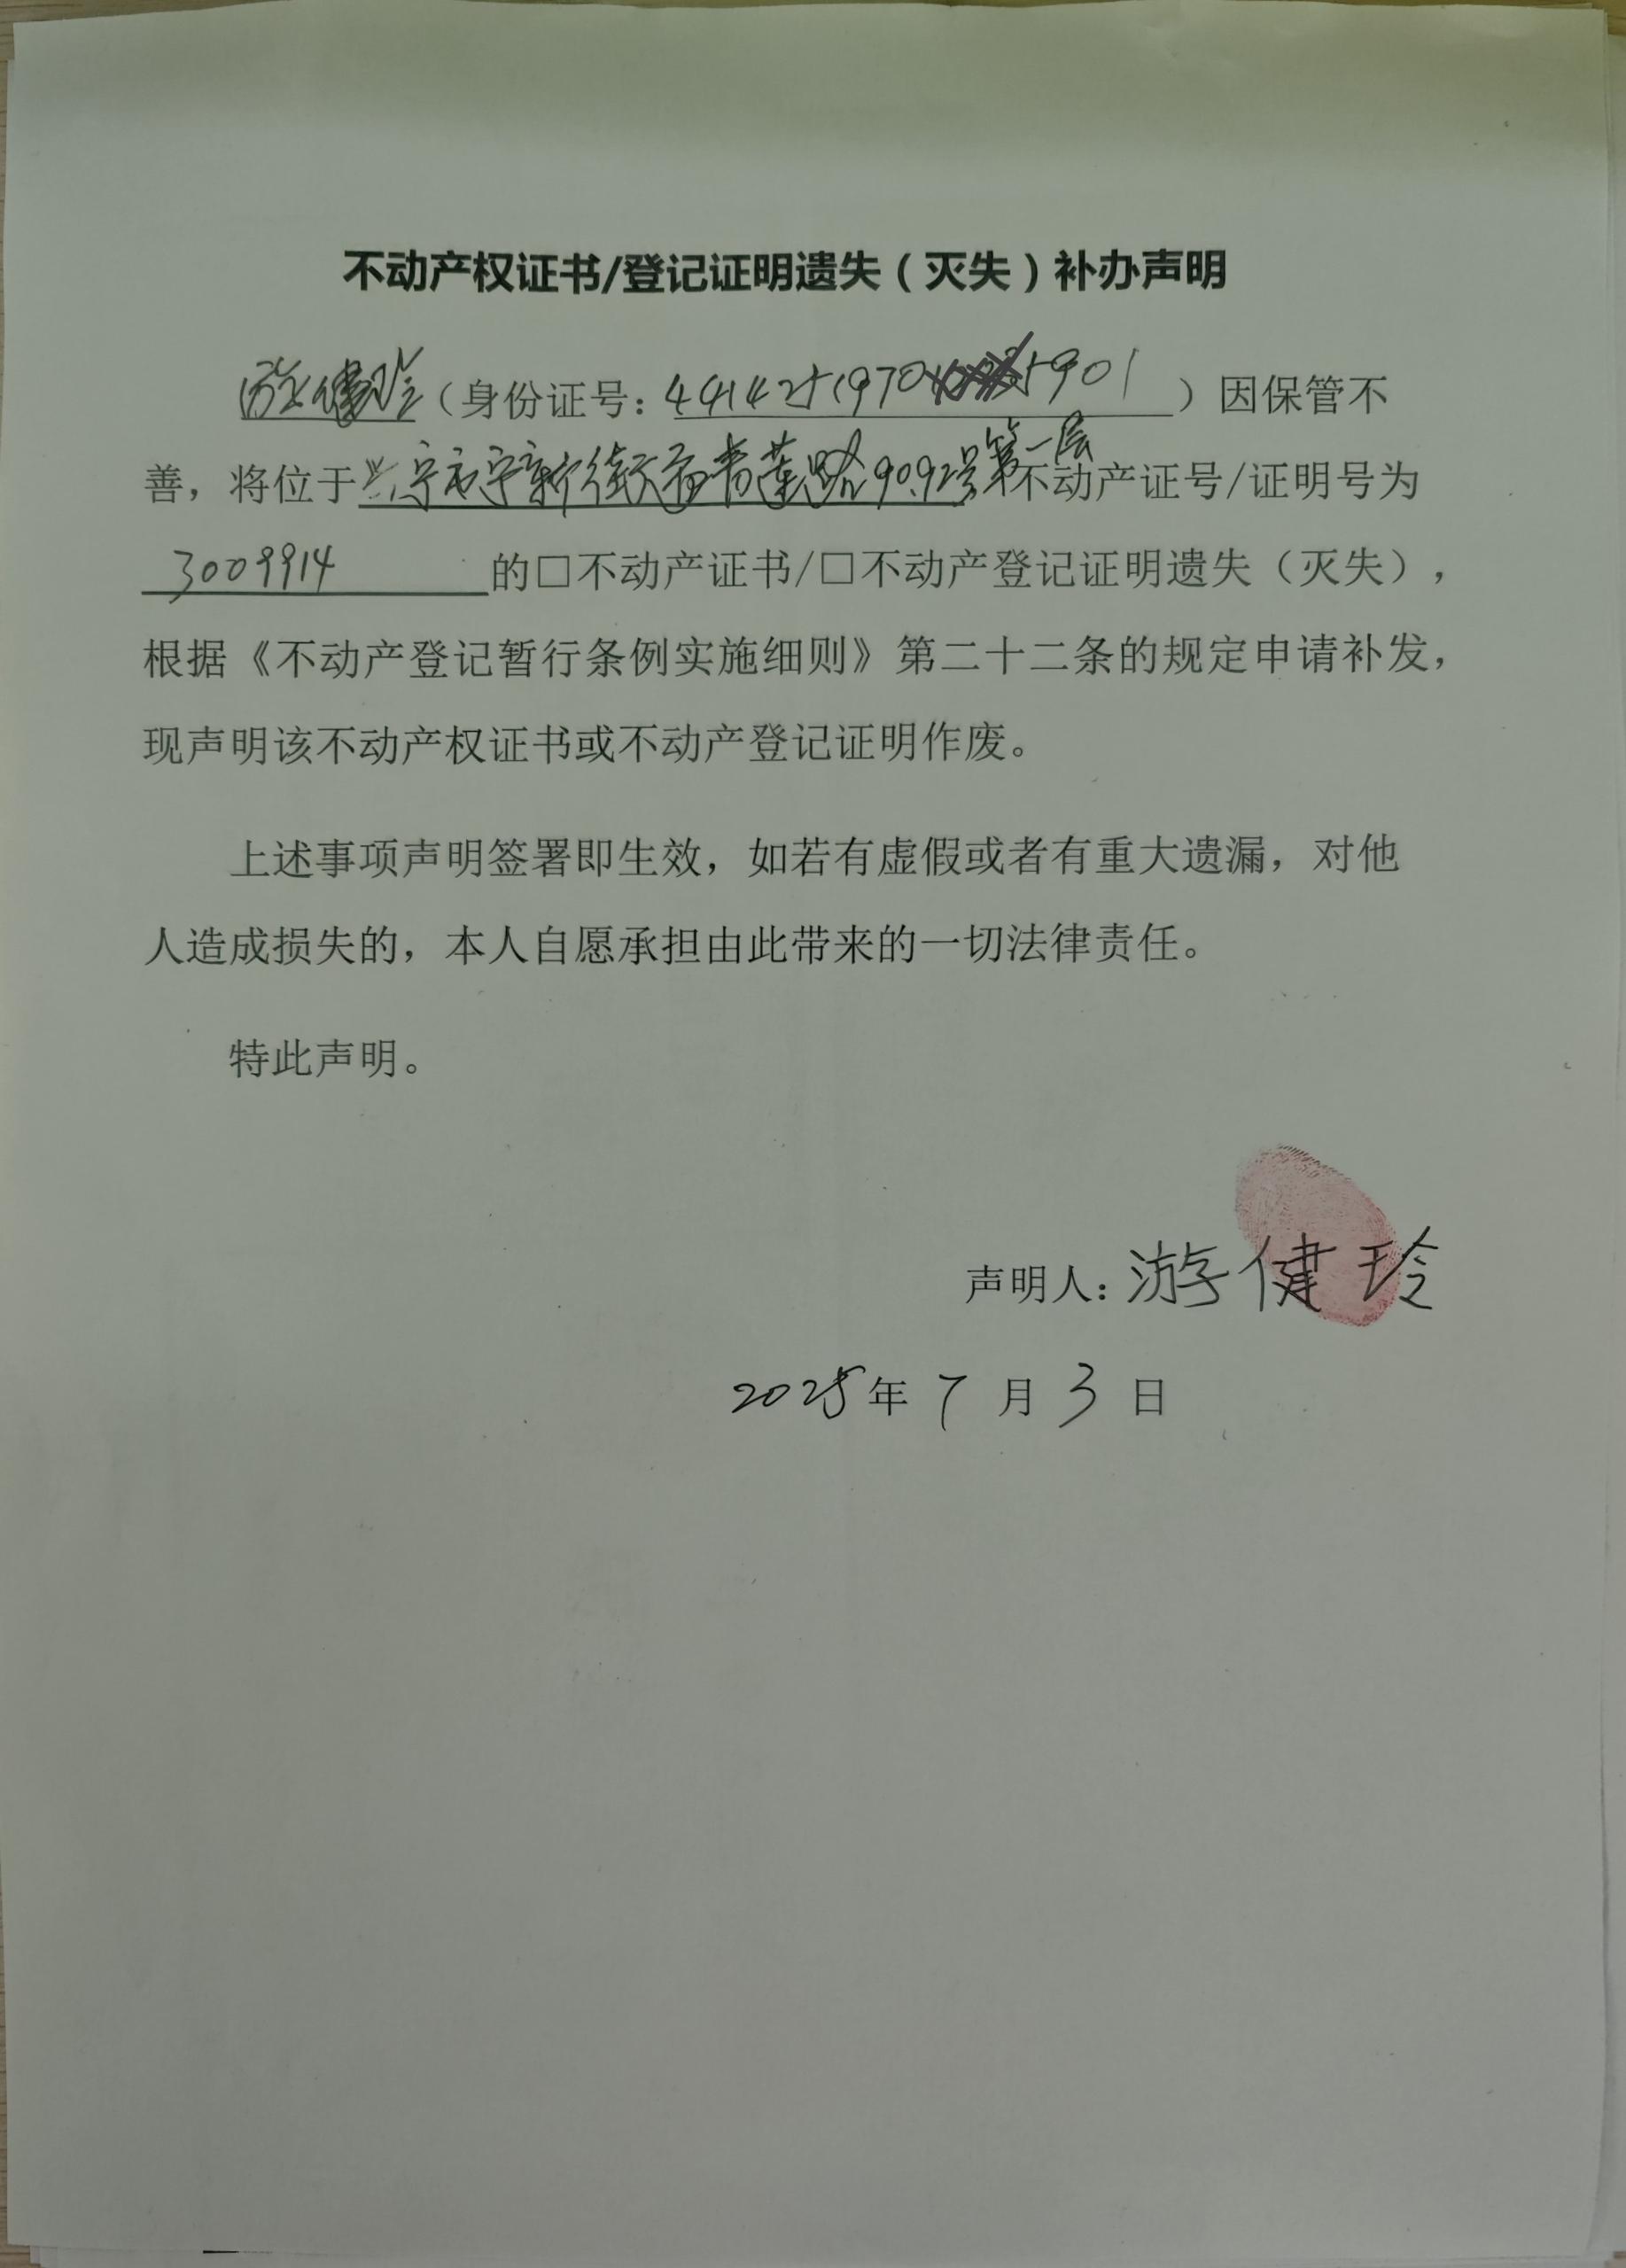 不动产权证书/登记证明遗失（灭失）补办声明
游健玲（身份证号：4414251970 5901）因保管不
善，将位于兴宁市宁新街 青莲路90.92号第一层不动产证号/证明号为
3009914的□不动产证书/□不动产登记证明遗失（灭失），
根据《不动产登记暂行条例实施细则》第二十二条的规定申请补发，
现声明该不动产权证书或不动产登记证明作废。
上述事项声明签署即生效，如若有虚假或者有重大遗漏，对他
人造成损失的，本人自愿承担由此带来的一切法律责任。
特此声明。
声明人：游健玲
2025年7月3日